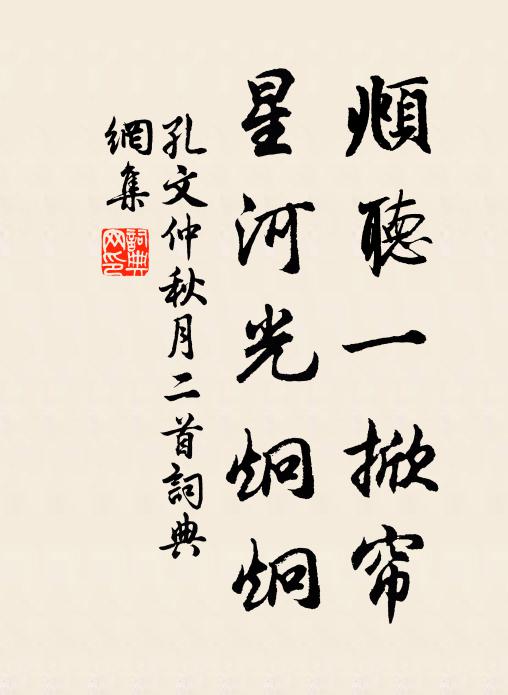 頫聽一掀帘
星河光炯炯
孔文仲秋月二首詞典
網集
詞典
网印